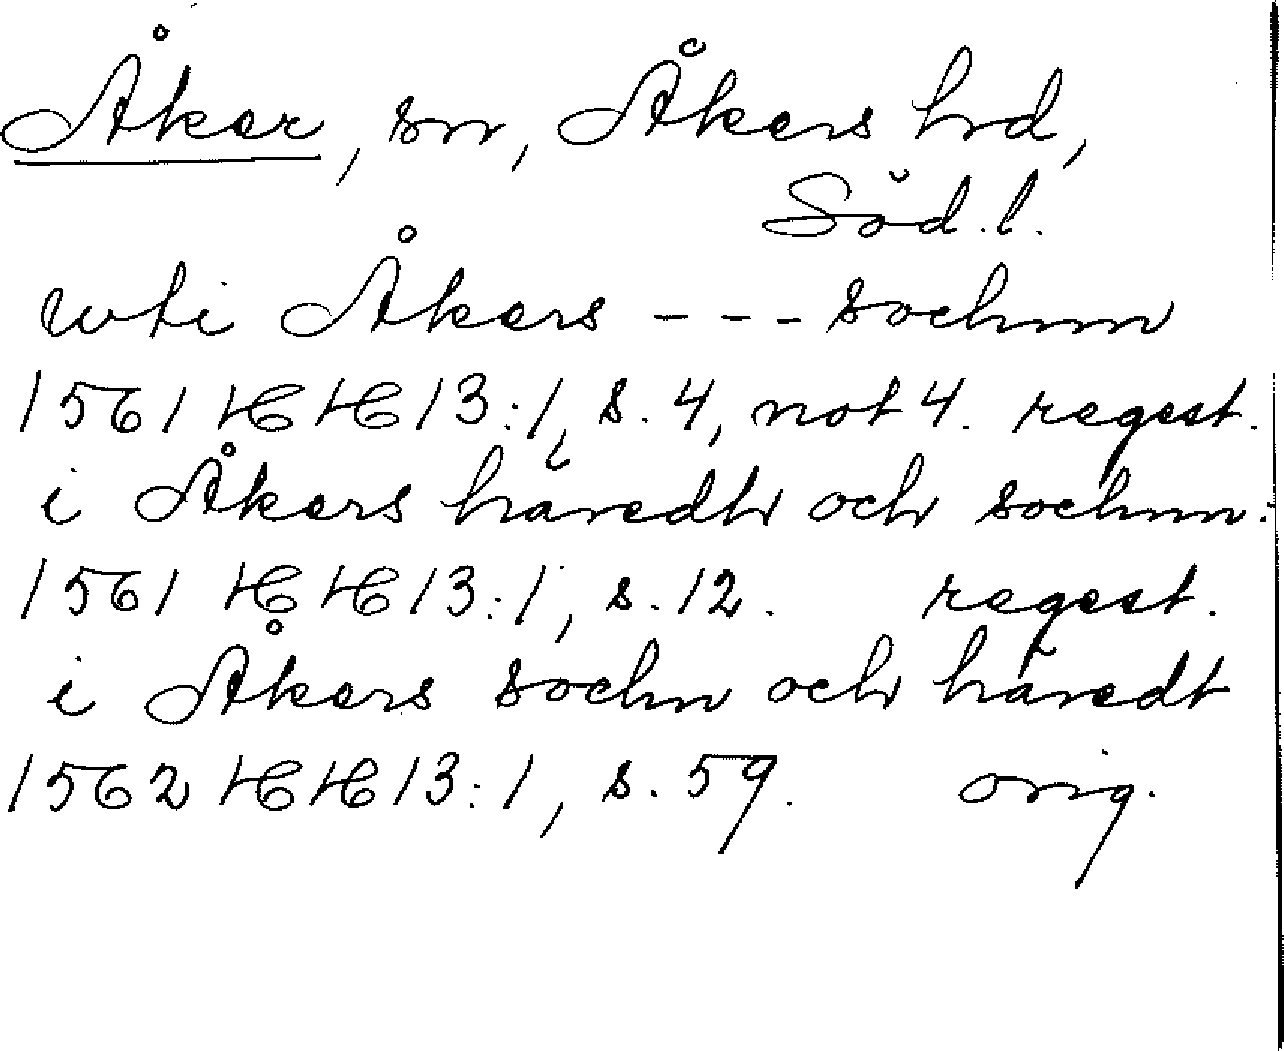 Åker, sn, Åkers hrd,
Söd.l.
wti Åkers --- sochnn
1561 HH 13:1, s. 4, not 4. regest.
i Åkers häredh och sochnn:
1561 HH 13:1, s. 12. regest.
i Åkers sochn och häredt
1562 HH 13:1, s. 59. orig.